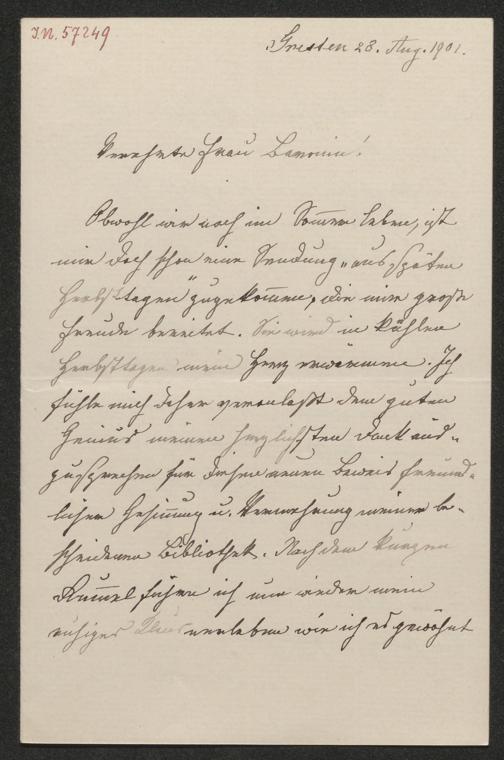 I.N. 57249
Gresten 28. Aug. 1901.
Verehrte Frau Baronin!
Obwohl wir noch im Som̄er leben, ist
mir doch schon eine Sendung „aus späten
Herbsttagen“ zugekom̄en, die mir große
Freude bereitet. Sie wird in kühlen
Herbsttagen mein Herz erwärmen. Ich
fühle mich daher veranlaßt dem guten
Genius meinen herzlichsten Dank aus-
zusprechen für diesen neuen Beweis freund-
licher Gesin̄ung u. Vermehrung meiner be-
scheidenen Bibliothek. Nach dem kurzen
Rum̄el führe ich nun wieder mein
ruhiges wie ich es gewöhnt